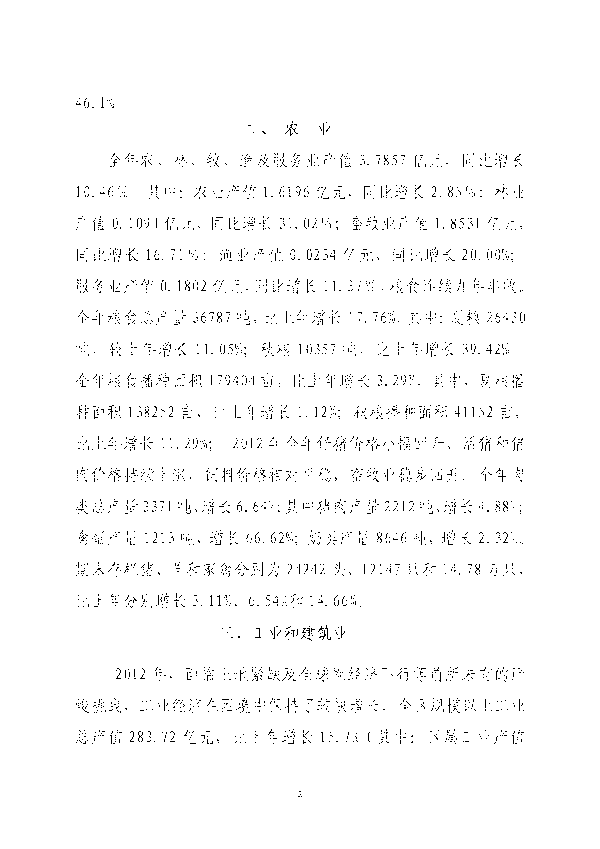 46.1%
二、 农 业
全年农、林、牧、渔及服务业产值 3.7857 亿元，同比增长
10.46%。其中：农业产值 1.6196 亿元，同比增长 2.85%；林业
产值 0.1091 亿元，同比增长 31.02%；畜牧业产值 1.8531 亿元，
同比增长 16.71%；渔业产值 0.0234 亿元，同比增长 20.00%；
服务业产值 0.1802 亿元，同比增长 11.37%。粮食连续九年丰收。
全年粮食总产量 36787 吨，比上年增长 17.76%。其中：夏粮 26430
吨，较上年增长 11.05%；秋粮 10357 吨，比上年增长 39.42%。
全年粮食播种面积 179404 亩，比上年增长 3.29%。其中，夏粮播
种面积 138252 亩，比上年增长 1.12%；秋粮播种面积 41152 亩，
比上年增长 11.29%。 2012 年全年仔猪价格小幅回升，活猪和猪
肉价格持续上涨，饲料价格相对平稳，畜牧业稳步回升。全年肉
类总产量 3371 吨，增长 6.64%；其中猪肉产量 2212 吨，增长 4.88%；
禽蛋产量 1213 吨，增长 66.62%；奶类产量 8646 吨，增长 2.32%。
期末存栏猪、羊和家禽分别为 24242 头、12147 只和 14.78 万只，
比上年分别增长 3.11%、6.54%和 14.66%。
三、工业和建筑业
2012 年，面临土地紧缺及全球性经济下行等前所未有的严
峻挑战，工业经济在困境中保持了较快增长。全区规模以上工业
总产值 283.72 亿元，比上年增长 15.7%（其中：区属工业产值
2